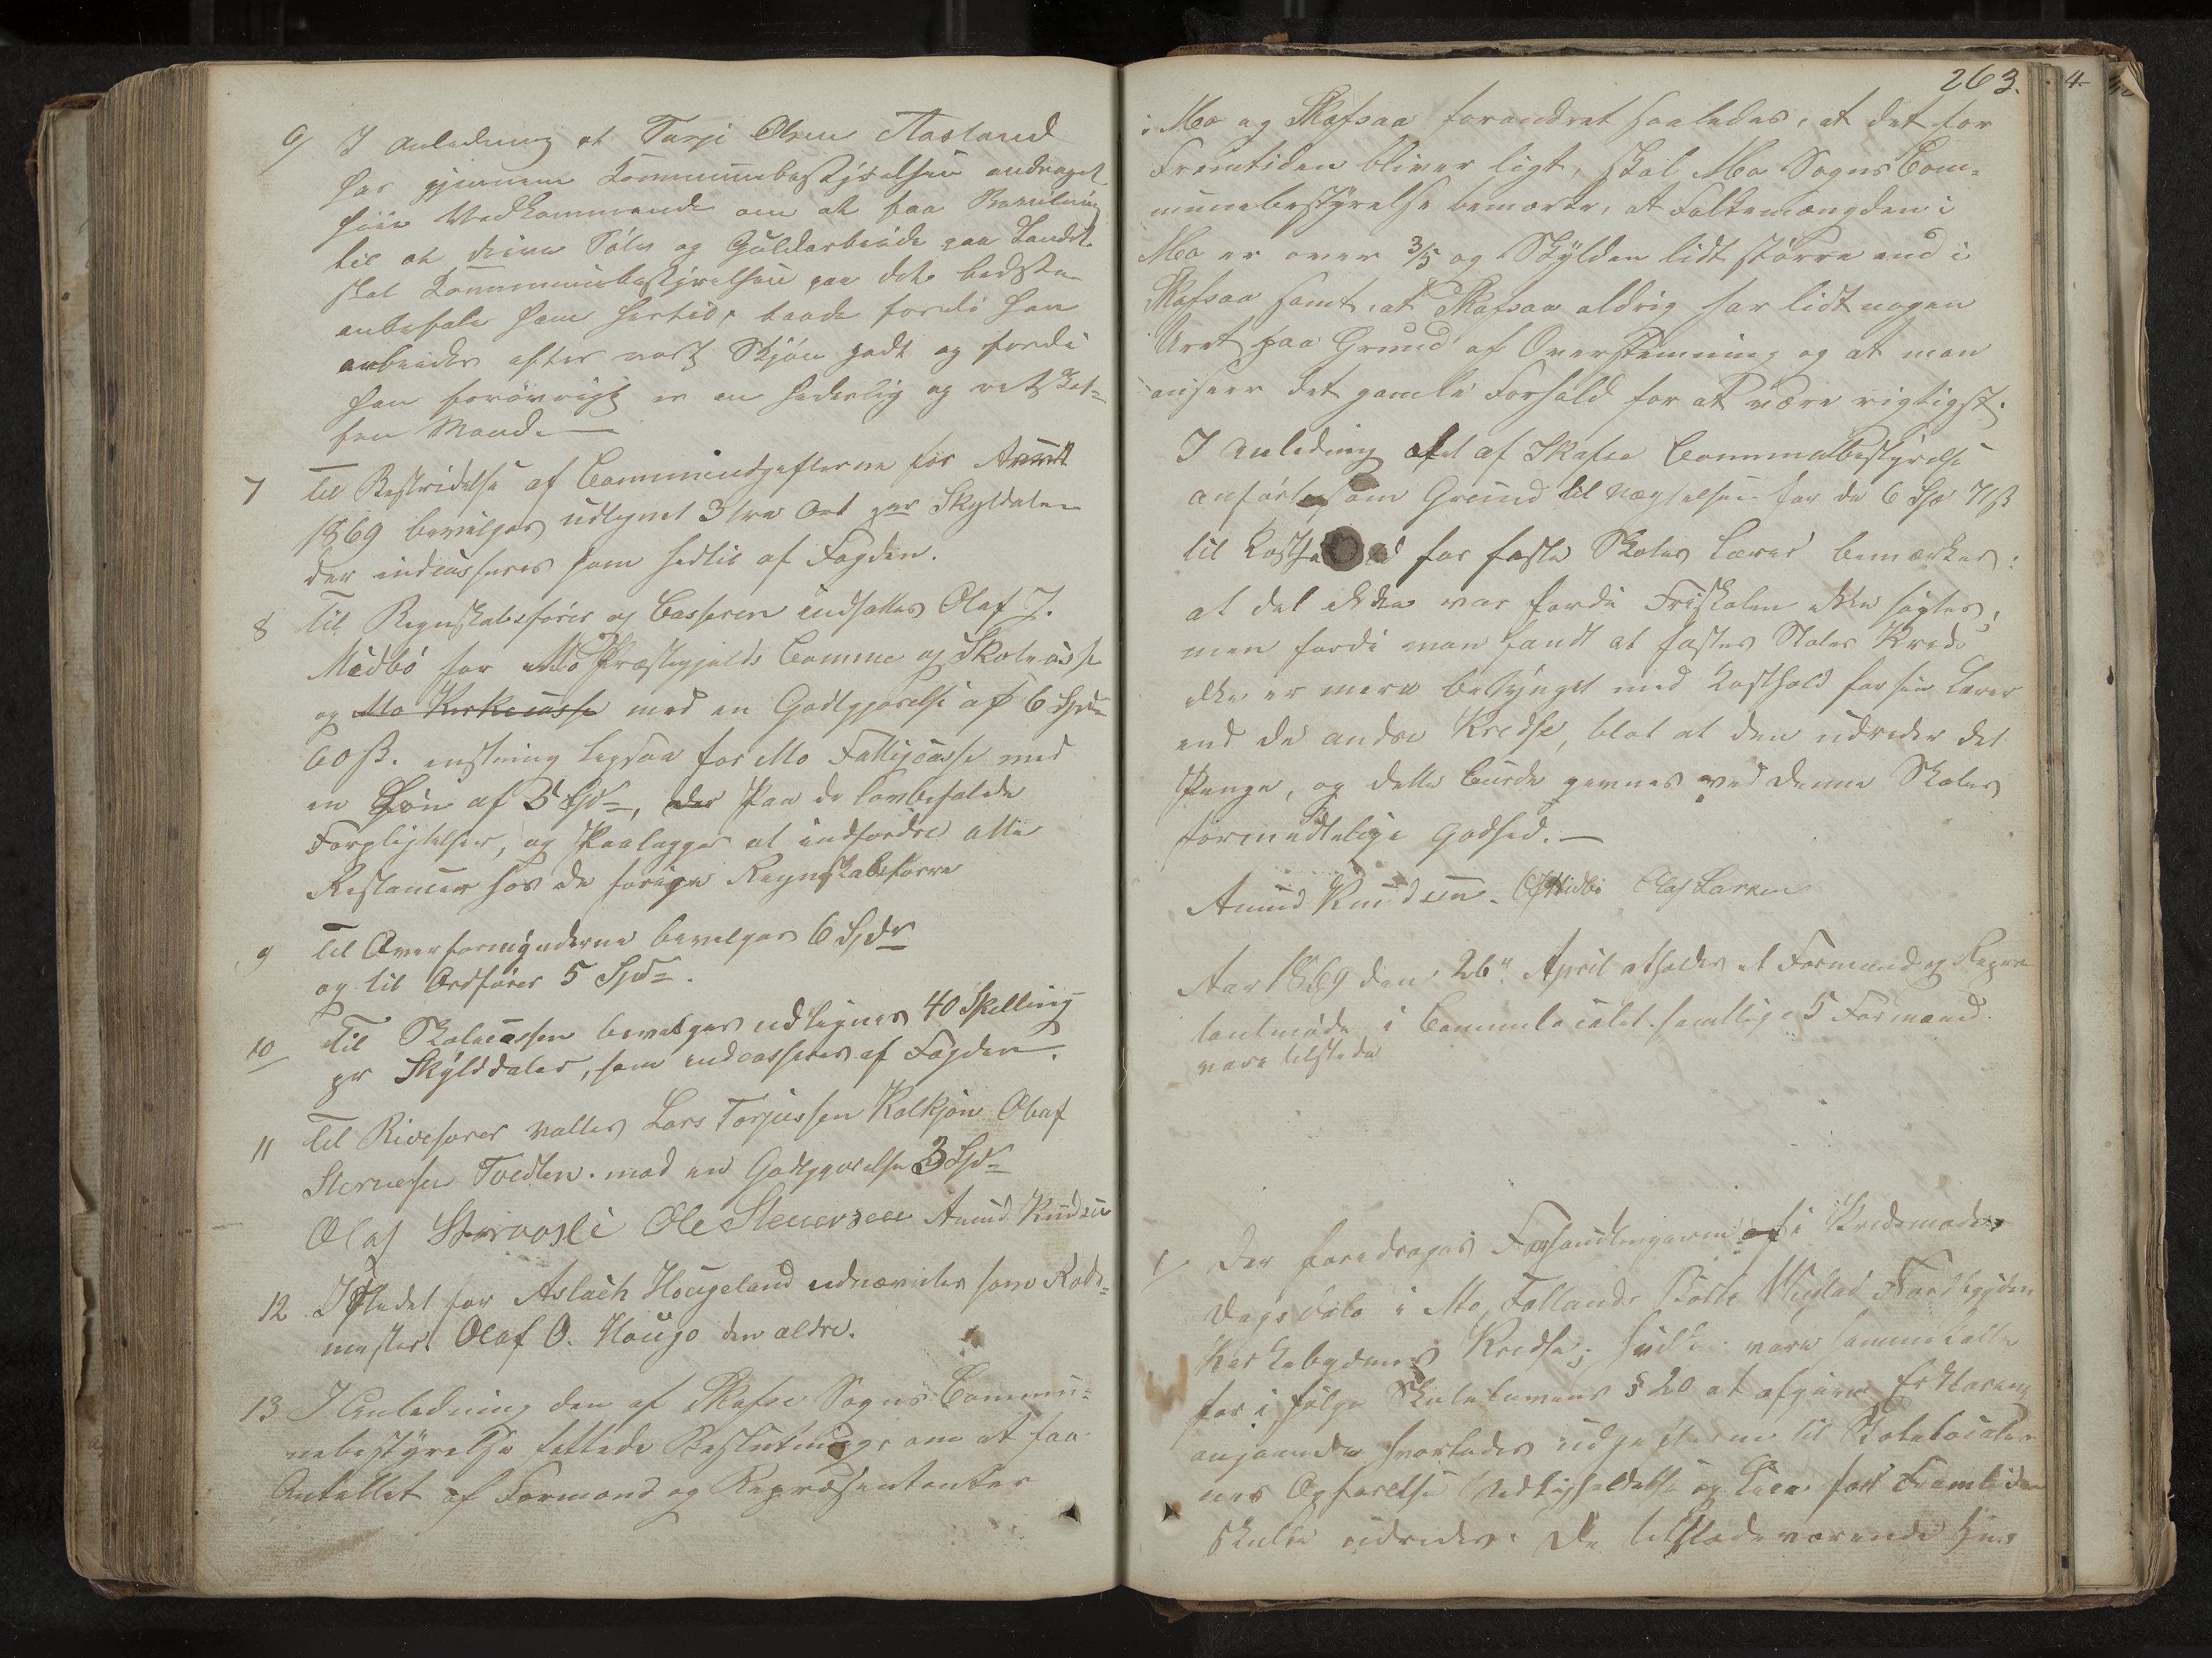 6/ I Anledning at Tarje Olsen Aasland
har gjennem Kommunebestyrelsen andraget
høie Vedkommende om at faa Bevilning
til at drive Sølv og Guldarbeide paa Landet
skal Kommunebestyrelsen paa det bedste
anbefale ham hertil, baade fordi han
arbeider efter vort Skjøn godt og fordi
han forøvrigt er en hæderlig og retskaf-
fen Mand. —
7 Til Bestridelse af Communeudgifterne for Aaret
1869 bevilges udlignet 3 tre Ort per Skylddaler
der indcasseres som hedtil af Fogden.
8 Til Regnskabsfører og Casserer indsattes Olaf J.
Midbø for Mo Præstegjelds Commune og Skolecasse
og Mo Kirkecasse med en Godtgjørelse af 6 Spd
60 ß. ligesaa for Mo Fattigcasse med
en Løn af 3 Spd, der Paa de lovbefalede
Forpligtelser, og Paalægges at indfordre alle
Restancer hos de forige Regnskabsførere
9 Til Overformynderne bevilges 6 Spdr
og til Ordfører 5 Spd.
10 Til Skolecassen bevilges udlignes 40 Skilling
pr Skylddaler, som indcasseres af Fogden.
11 Til Rivefører valtes Lars Torjussen Kolkjøn Olaf
Tvedten. mod en Godtgjørelse 3 Spd
Olaf Ole Steenersen Aanund Knudsen
12 Istedet for Aslach Hougeland udnævntes som Rode-
mester Olaf O. Hougo den ældre.
13 I Anledning den af Skafse Sogns Commu-
nebestyrelse fattede Beslutning, om at faa
Antallet af Formænd og Repræsentanter
263.
i Mo og Skafsaa forandret saaledes, at det for
Fremtiden bliver ligt, skal Mo Sogns Com-
munebestyrelse bemærke, at Folkemængden i
Mo er over 3/5 og Skylden lidt større end i
Skafsaa samt, at Skafsaa aldrig har lidt nogen
Uret paa Grund af Overstemning og at man
anseer det gamle Forhold for at være rigtigst.
I Anledning af det af Skafse Communebestyrelse
anførte som Grund til Nægtelsen for de 6 Spd 7 ß
til Kosthold for faste Skoles Lærer bemærkes:
at det ikke var fordi Friskolen ikke søgtes,
men fordi man fandt at fastes Skoles Kreds
ikke er mere betynget med Kosthold for sin Lærer
end de andre Kredse, blot at den udreder det
Penge, og dette burde jevnes ved denne Skoles
formentlige Godhed. —
Aanund Knudsen. O J Midbø Olaf Larsen
Aar 1869 den 26de April afholdes et Formænd og Repræ
tantmøde i Communelocalet. samtlige 5 Formænd
vare tilstede
1/ Der foredroges Forhandlingerne af i Kredsmøder
i Mo, Børte
Kirkebygdens Kredse; hvilke vare sammenkaldte
for i følge Skolelovens § 20 at afgive Erklæring
angaaende hvorledes udgifterne til Skolelocaler
nes Opførelse Vedligeholdelse og Leie for Fremtiden
skulde udredes. De tilstedeværende